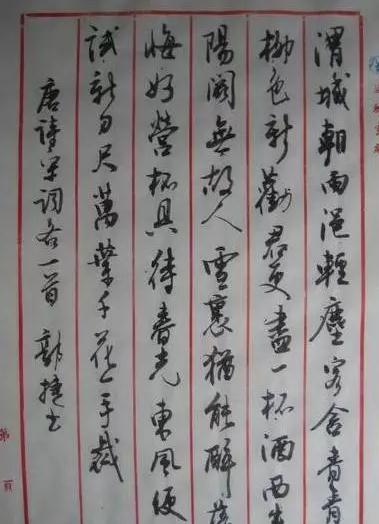 渭城朝雨浥輕塵客舍青青
柳色新勸君更盡一杯酒西出
陽關無故人雪裏猶能醉落
梅好營杯具待春來東風便
試新刀尺萬葉千花一手裁
唐詩宋詞各一首 郭捷书
第 頁